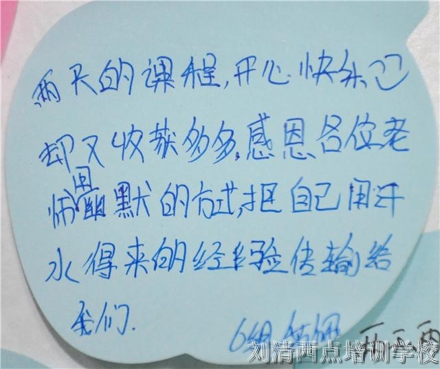 两天的课程,开心快乐
却又收获多多,感恩各位老
师用幽默的方式,把自己用汗
水得来的经验传输给
我们.
6组
刘清西点培训学校